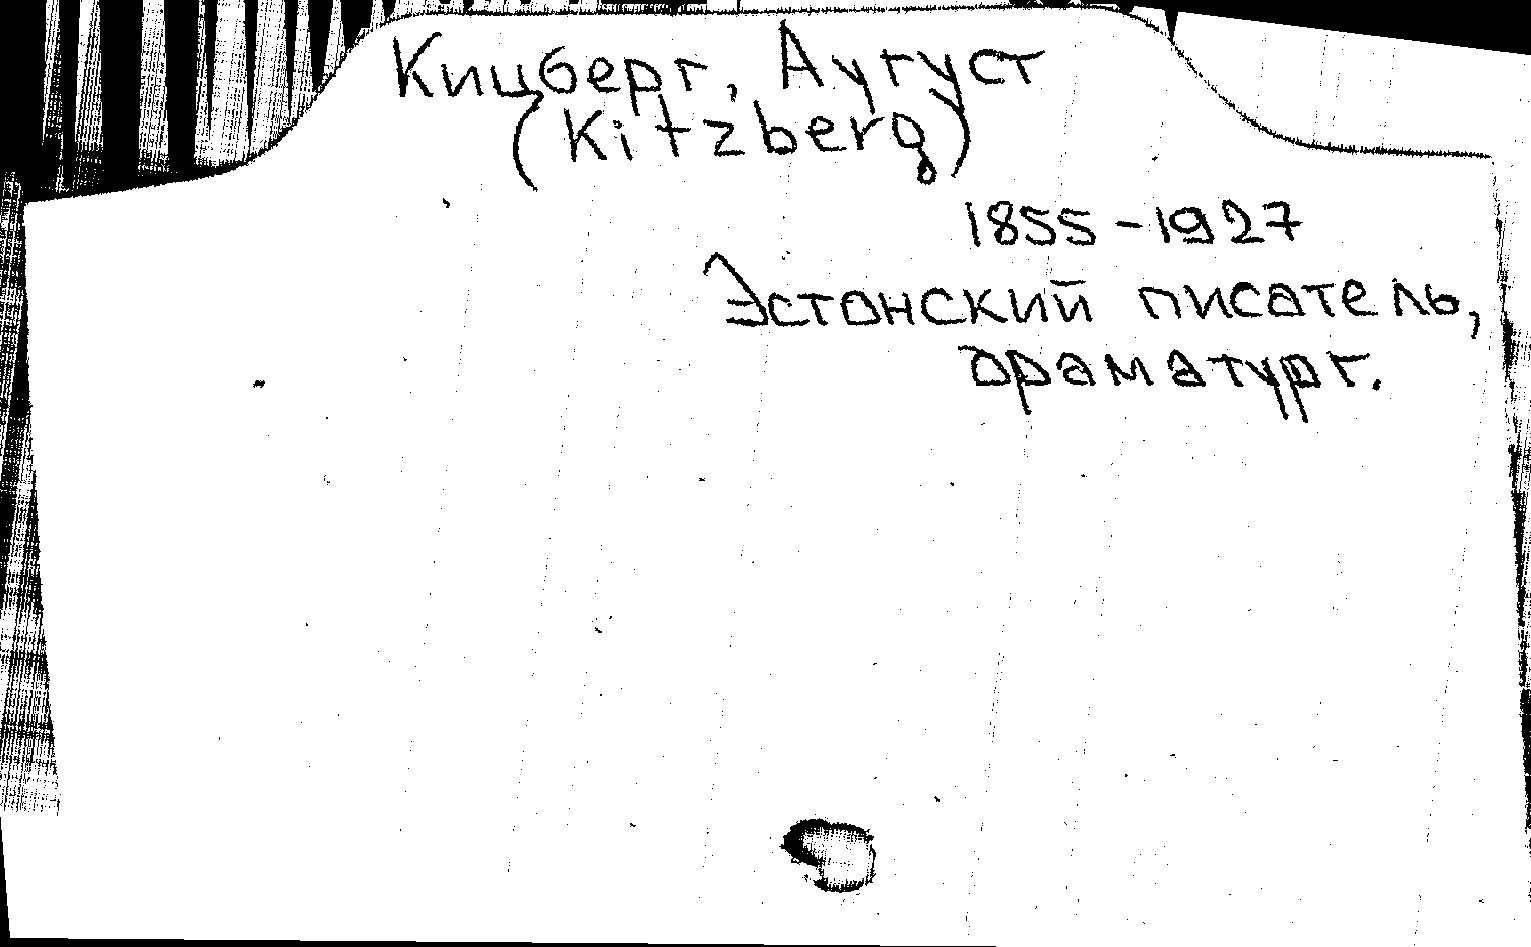 Кицберг, Аугуст
(Kitzberg)
1855-1927
Эстонский писатель,
драматург.